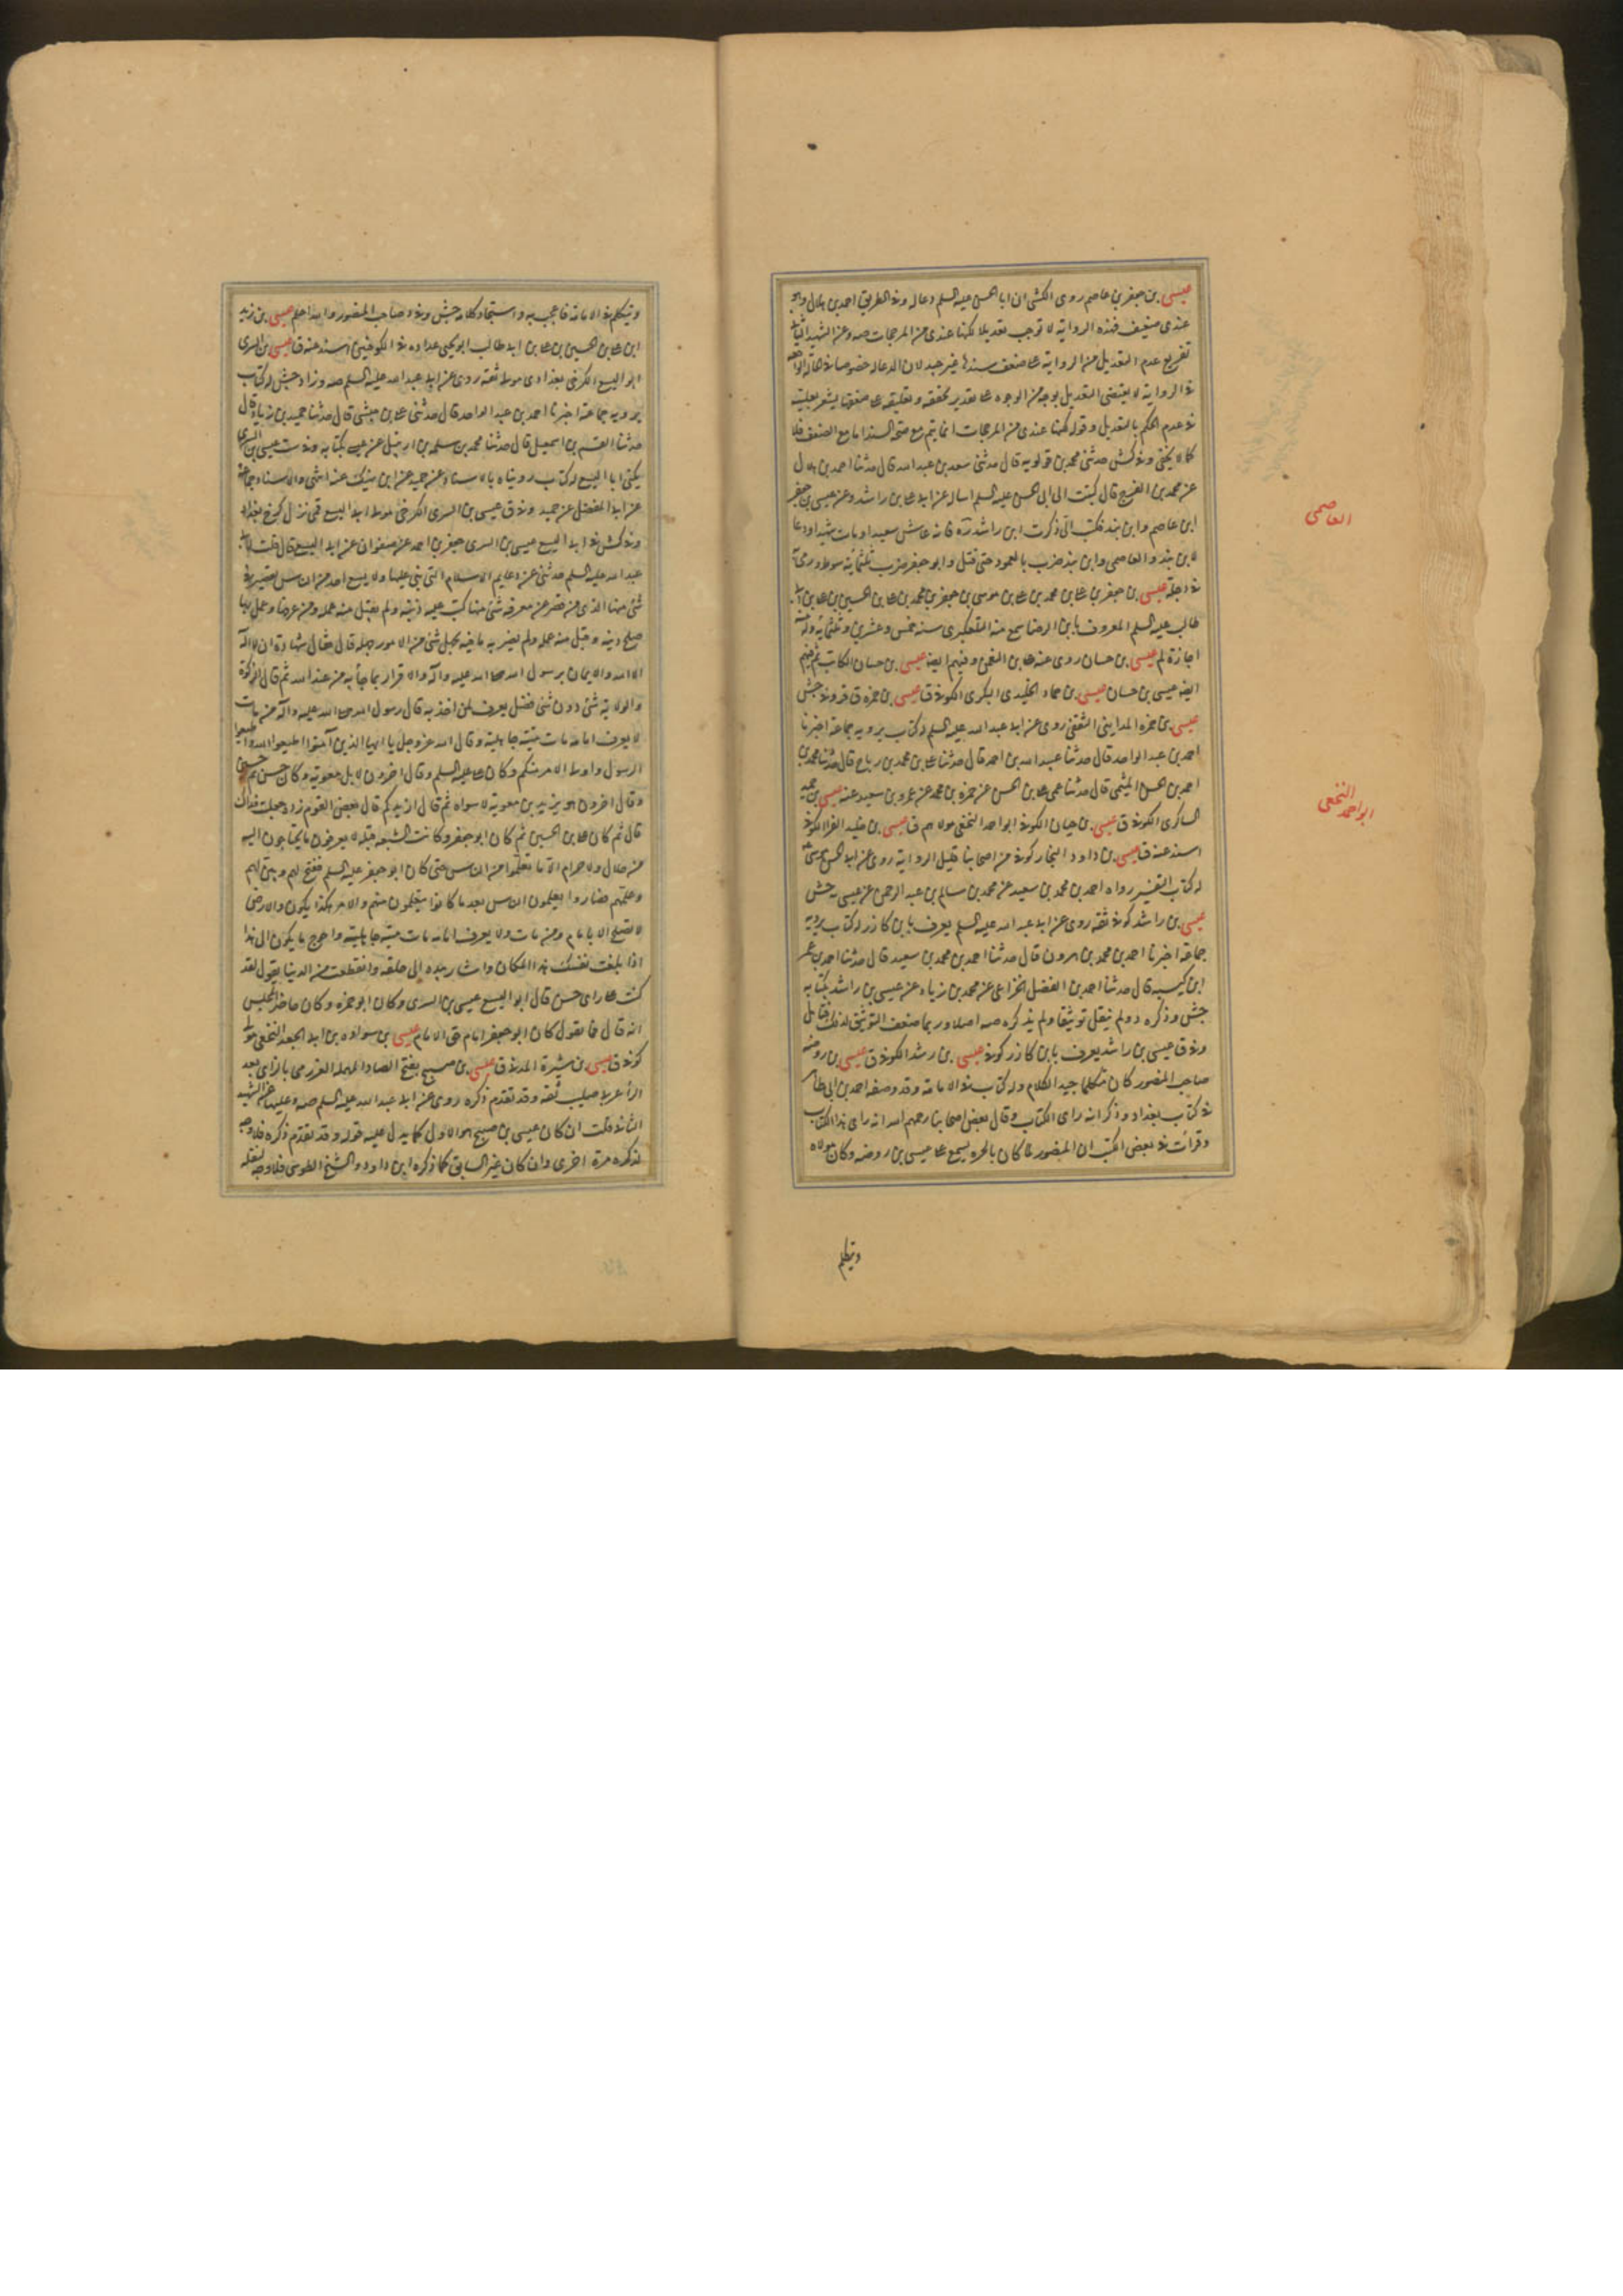 عيسى بن جعفر بن عاصم روى الكشى ان ابا الحسن عليه السلم دعا له وفى الطريق احمد بن هلال وهو
عندى ضعيف فهذه الرواية لا توجب تعديلا لكنها عندى من المرجحات صه وعن الشهيد الثانى
تفريع عدم التعديل من الرواية على ضعف سندها غير جيد لان الدعا له
فى الرواية لا يقتضى التعديل بوجه من الوجوه على تقدير تحققه وتعليقه على ضعفها يشعر
فى عدم الحكم بالتعديل وقوله لكنها عندى من المرجحات انما يتم مع صحة السند اما مع الضعف فلا
كما لا يخفى وفى كش حدثنى محمد بن قولويه قال حدثنى سعد بن عبد الله قال حدثنا احمد بن هلال
عن محمد بن الفرج قال كتبت الى ابى الحسن عليه السلم اساله عن ابى على بن راشد وعن عيسى بن جعفر
ابن عاصم وابن بند فكتب الى ذكرت ابن راشد ره فانه عاش سعيدا ومات شهيدا ودعا
لابن بند والعاصمى وابن بند ضرب بالعمود حتى قتل وابو جعفر ضرب ثلثمائة سوط ورمى
فى دجلة عيسى بن جعفر بن على بن محمد بن على بن موسى بن جعفر بن محمد بن على بن الحسين بن على بن ابى
طالب عليه السلم المعروف بابن الرضا سمع منه التلعكبرى سنة خمس وعشرين وثلثمائة وله منه
اجازة لم عيسى بن حسان روى عنه على بن النعمن وفيهم ايضا عيسى بن حسان الكاتب ثم فيهم
ايضا عيسى بن حسان عيسى بن حماد الخليدى البكرى الكوفى ق عيسى بن حمزة ق قر وفى جش
عيسى بن حمزه المداينى الثقفى روى عن ابى عبد الله عليه السلم له كتاب يرويه جماعة اخبرنا
احمد بن عبد الواحد قال حدثنا عبيد الله بن احمد قال حدثنا على بن محمد بن رباح قال حدثنا محمد بن
احمد بن الحسن الميثمى قال حدثنا عمى على بن الحسن عن حمزه بن محمد عن عمرو بن سعيد عنه عيسى بن حميد
الساكرى الكوفى ق عيسى بن حيان الكوفى ابو احمد النخعى مولاهم ق عيسى بن خليد الفرا الكوفى
اسند عنه ق عيسى بن داود النجار كوفى من اصحابنا قليل الرواية روى عن ابى الحسن موسى ع
له كتاب التفسير رواه احمد بن محمد بن سعيد عن محمد بن سالم بن عبد الرحمن عن عيسى به جش
عيسى بن راشد كوفى ثقه روى عن ابى عبد الله عليه السلم يعرف بابن كازر له كتاب يرويه
جماعة اخبرنا احمد بن محمد بن هرون قال حدثنا احمد بن محمد بن سعيد قال حدثنا احمد بن عمر
ابن كيسبه قال حدثنا احمد بن الفضل الخزاعى عن محمد بن زياد عن عيسى بن راشد بكتابه
جش وذكره د ولم ينقل توثيقا ولم يذكره صه اصلا وربما ضعف التوثيق لذلك فتامل
وفى ق عيسى بن راشد يعرف بابن كازر كوفى عيسى بن رشد الكوفى ق عيسى بن روضه
صاحب المنصور كان متكلما جيد الكلام وله كتاب فى الامامة وقد وصفه احمد بن ابى طاهر
فى كتاب بغداد وذكر انه راى الكتاب وقال بعض اصحابنا رحمهم الله انه راى هذا الكتاب
وقرات فى بعض الكتب ان المنصور لما كان بالحيره يسمع على عيسى بن روضه وكان مولاه
ويتكلم
العاصمى
ابو احمد النخعى
ويتكلم فى الامامة فاعجب به واستجاد كلامه جش وفى د صاحب المنصور والله اعلم عيسى بن زيد
ابن على بن الحسين بن على بن ابى طالب ابو يحيى عداده فى الكوفيين اسند عنه ق عيسى بن السرى
ابو اليسع الكرخى بغدادى مولى ثقه روى عن ابى عبد الله عليه السلم صه وزاد جش له كتاب
يرويه جماعة اخبرنا احمد بن عبد الواحد قال حدثنى على بن حبشى قال حدثنا حميد بن زياد قال
حدثنا القسم بن اسمعيل قال حدثنا محمد بن سلمه بن ارتبيل عن عيسى بكتابه وفى ست عيسى بن السرى
يكنى ابا اليسع له كتاب رويناه بالاسناد عن حميد عن ابن نهيك عنه انتهى والاسناد جماعة
عن ابى المفضل عن حميد وفى ق عيسى بن السرى الكرخى مولى ابو اليسع قمى نزل كرخ بغداد
وفى كش فى ابى اليسع عيسى بن السرى جعفر بن احمد عن صفوان عن ابى اليسع قال قلت لابى
عبد الله عليه السلم حدثنى عن دعايم الاسلام التى بنى عليها ولا يسع احد من الناس تقصير فى
شئ منها الذى من قصر عن معرفة شئ منها كبت عليه دينه ولم يقبل منه عمله ومن عرفها وعمل بها
صلح دينه وقبل منه عمله ولم يضر به ما فيه بجهل شئ من الامور جهله قال فقال شهادة ان لا اله
الا الله والايمان برسول الله صلى الله عليه وآله والاقرار بما جاء به من عند الله ثم قال الزكوة
والولاية شئ دون شئ فضل يعرف لمن اخذ به قال رسول الله صلى الله عليه وآله من مات
لا يعرف امامه مات ميتة جاهلية وقال الله عز وجل يا ايها الذين آمنوا اطيعوا الله واطيعوا
الرسول واولى الامر منكم وكان على عليه السلم وقال اخرون لا بل معوية وكان حسن ثم حسين
وقال اخرون هو يزيد بن معوية لا سواه ثم قال ازيدكم قال بعض القوم زده جعلت فداك
قال ثم كان على بن الحسين ثم كان ابو جعفر وكانت الشيعة قبله لا يعرفون ما يحتاجون اليه
من حلال ولا حرام الا ما تعلموا من الناس حتى كان ابو جعفر عليه السلم ففتح لهم وبين لهم
وعلمهم فصاروا يعلمون الناس بعد ما كانوا يتعلمون منهم والامر هكذا يكون والارض
لا تصلح الا بامام ومن مات ولا يعرف امامه مات ميتة جاهلية واحوج ما يكون الى هذا
اذا بلغت نفسك هذا المكان واشار بيده الى حلقه وانقطعت من الدنيا يقول لقد
كنت على راى حسن قال ابو اليسع عيسى بن السرى وكان ابو حمزه وكان حاضر المجلس
انه قال فما يقول كان ابو جعفر امام حق الامام عيسى بن سواده بن ابى الجعد النخعى مولى
كوفى ق عيسى بن شبرة المدنى ق عيسى بن صبيح بفتح الصاد المهمله العزرمى بالزاى بعد
الراء عربى صليب ثقه وقد تقدم ذكره روى عن ابى عبد الله عليه السلم صه وعليها عن الشهيد
الثانى قلت ان كان عيسى بن صبيح هو الاول كما يدل عليه قوله وقد تقدم ذكره فلا وجه
لذكره مرة اخرى وان كان غير السابق كما ذكره ابن داود والشيخ الطوسى فلا وجه لنقله